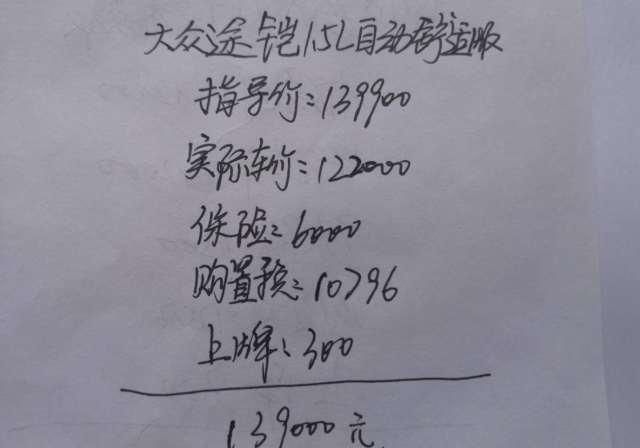 大众途铠1.5L自动舒适版
指导价:139900
实际车价:122000
保险:6000
购置税:10796
上牌:300
139000元